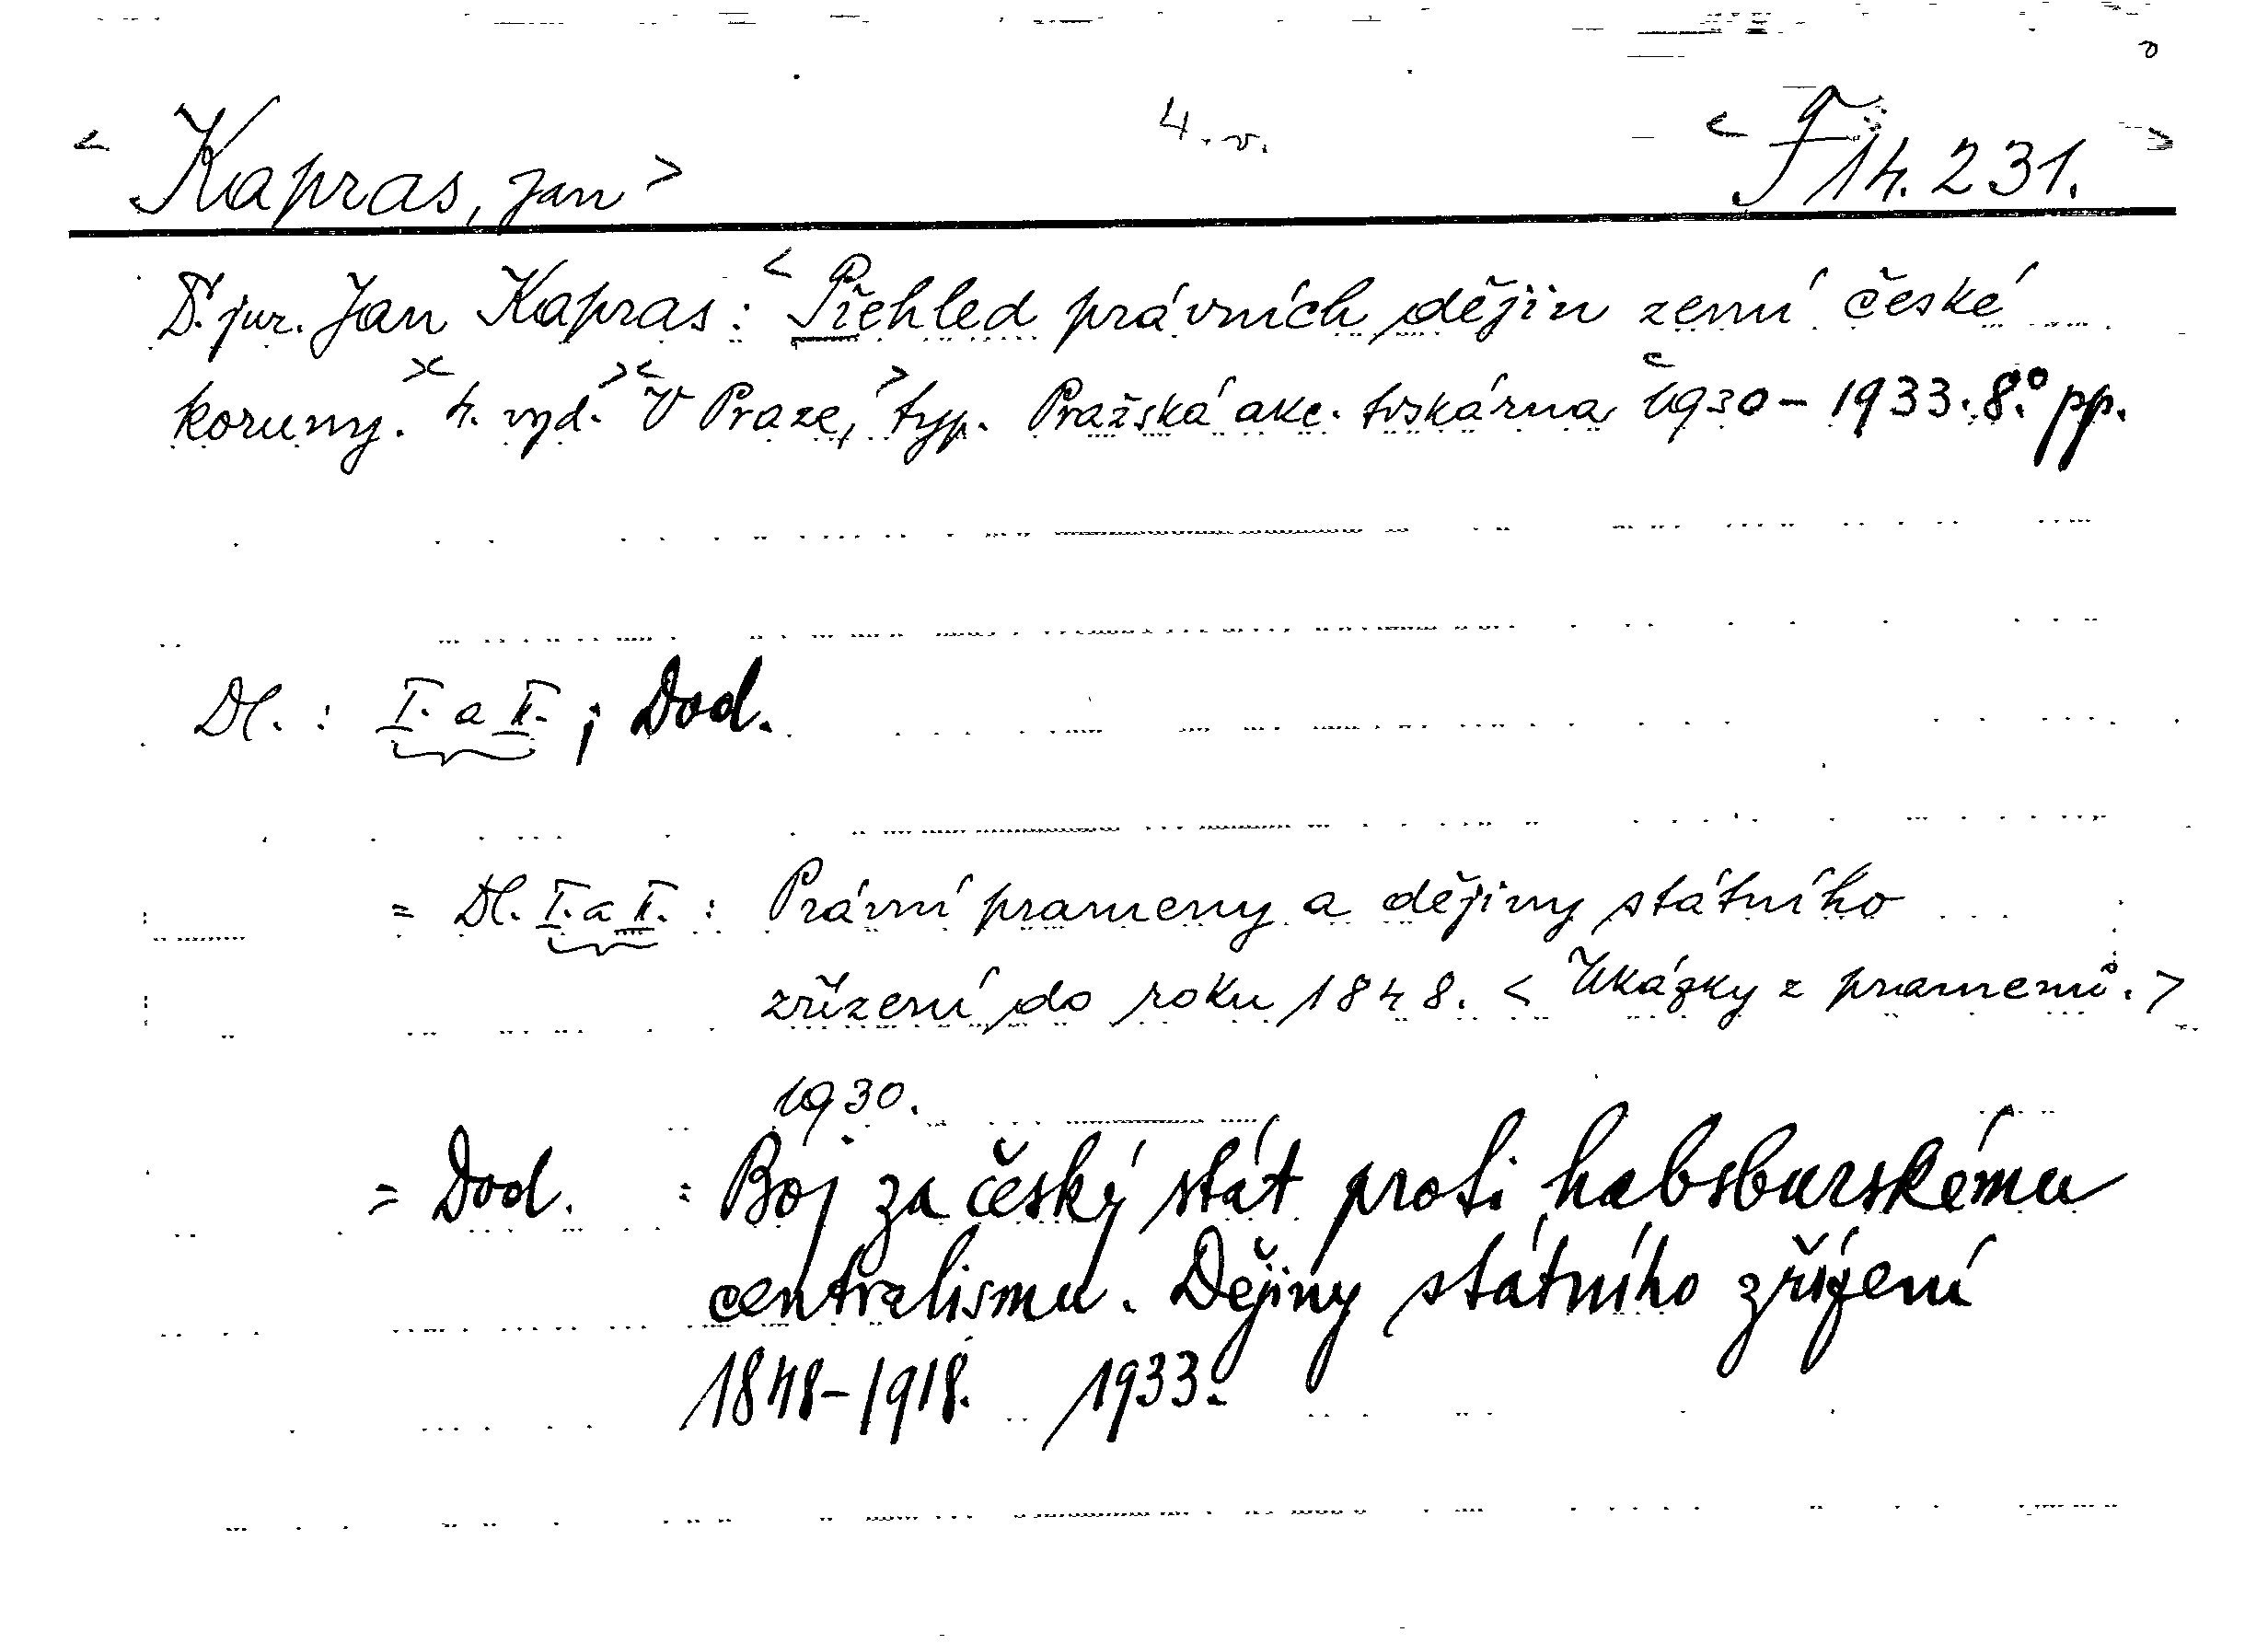 < Kapras, Jan > 4. v. < F 14.231. >
Dr. jur. Jan Kapras: < Přehled právních dějin zemí české
koruny. >< 4. vyd. >< V Praze, > typ. Pražská akc. tiskárna < 1930 - 1933. 8.° pp.
Dl. : I. a II. ; Dod.
= Dl. I. a II. : Právní prameny a dějiny státního
zřízení do roku 1848. < Ukázky z pramenů. >
1930.
= Dod. : Boj za český stát proti habsburskému
centralismu. Dějiny státního zřízení
1848-1918. 1933.